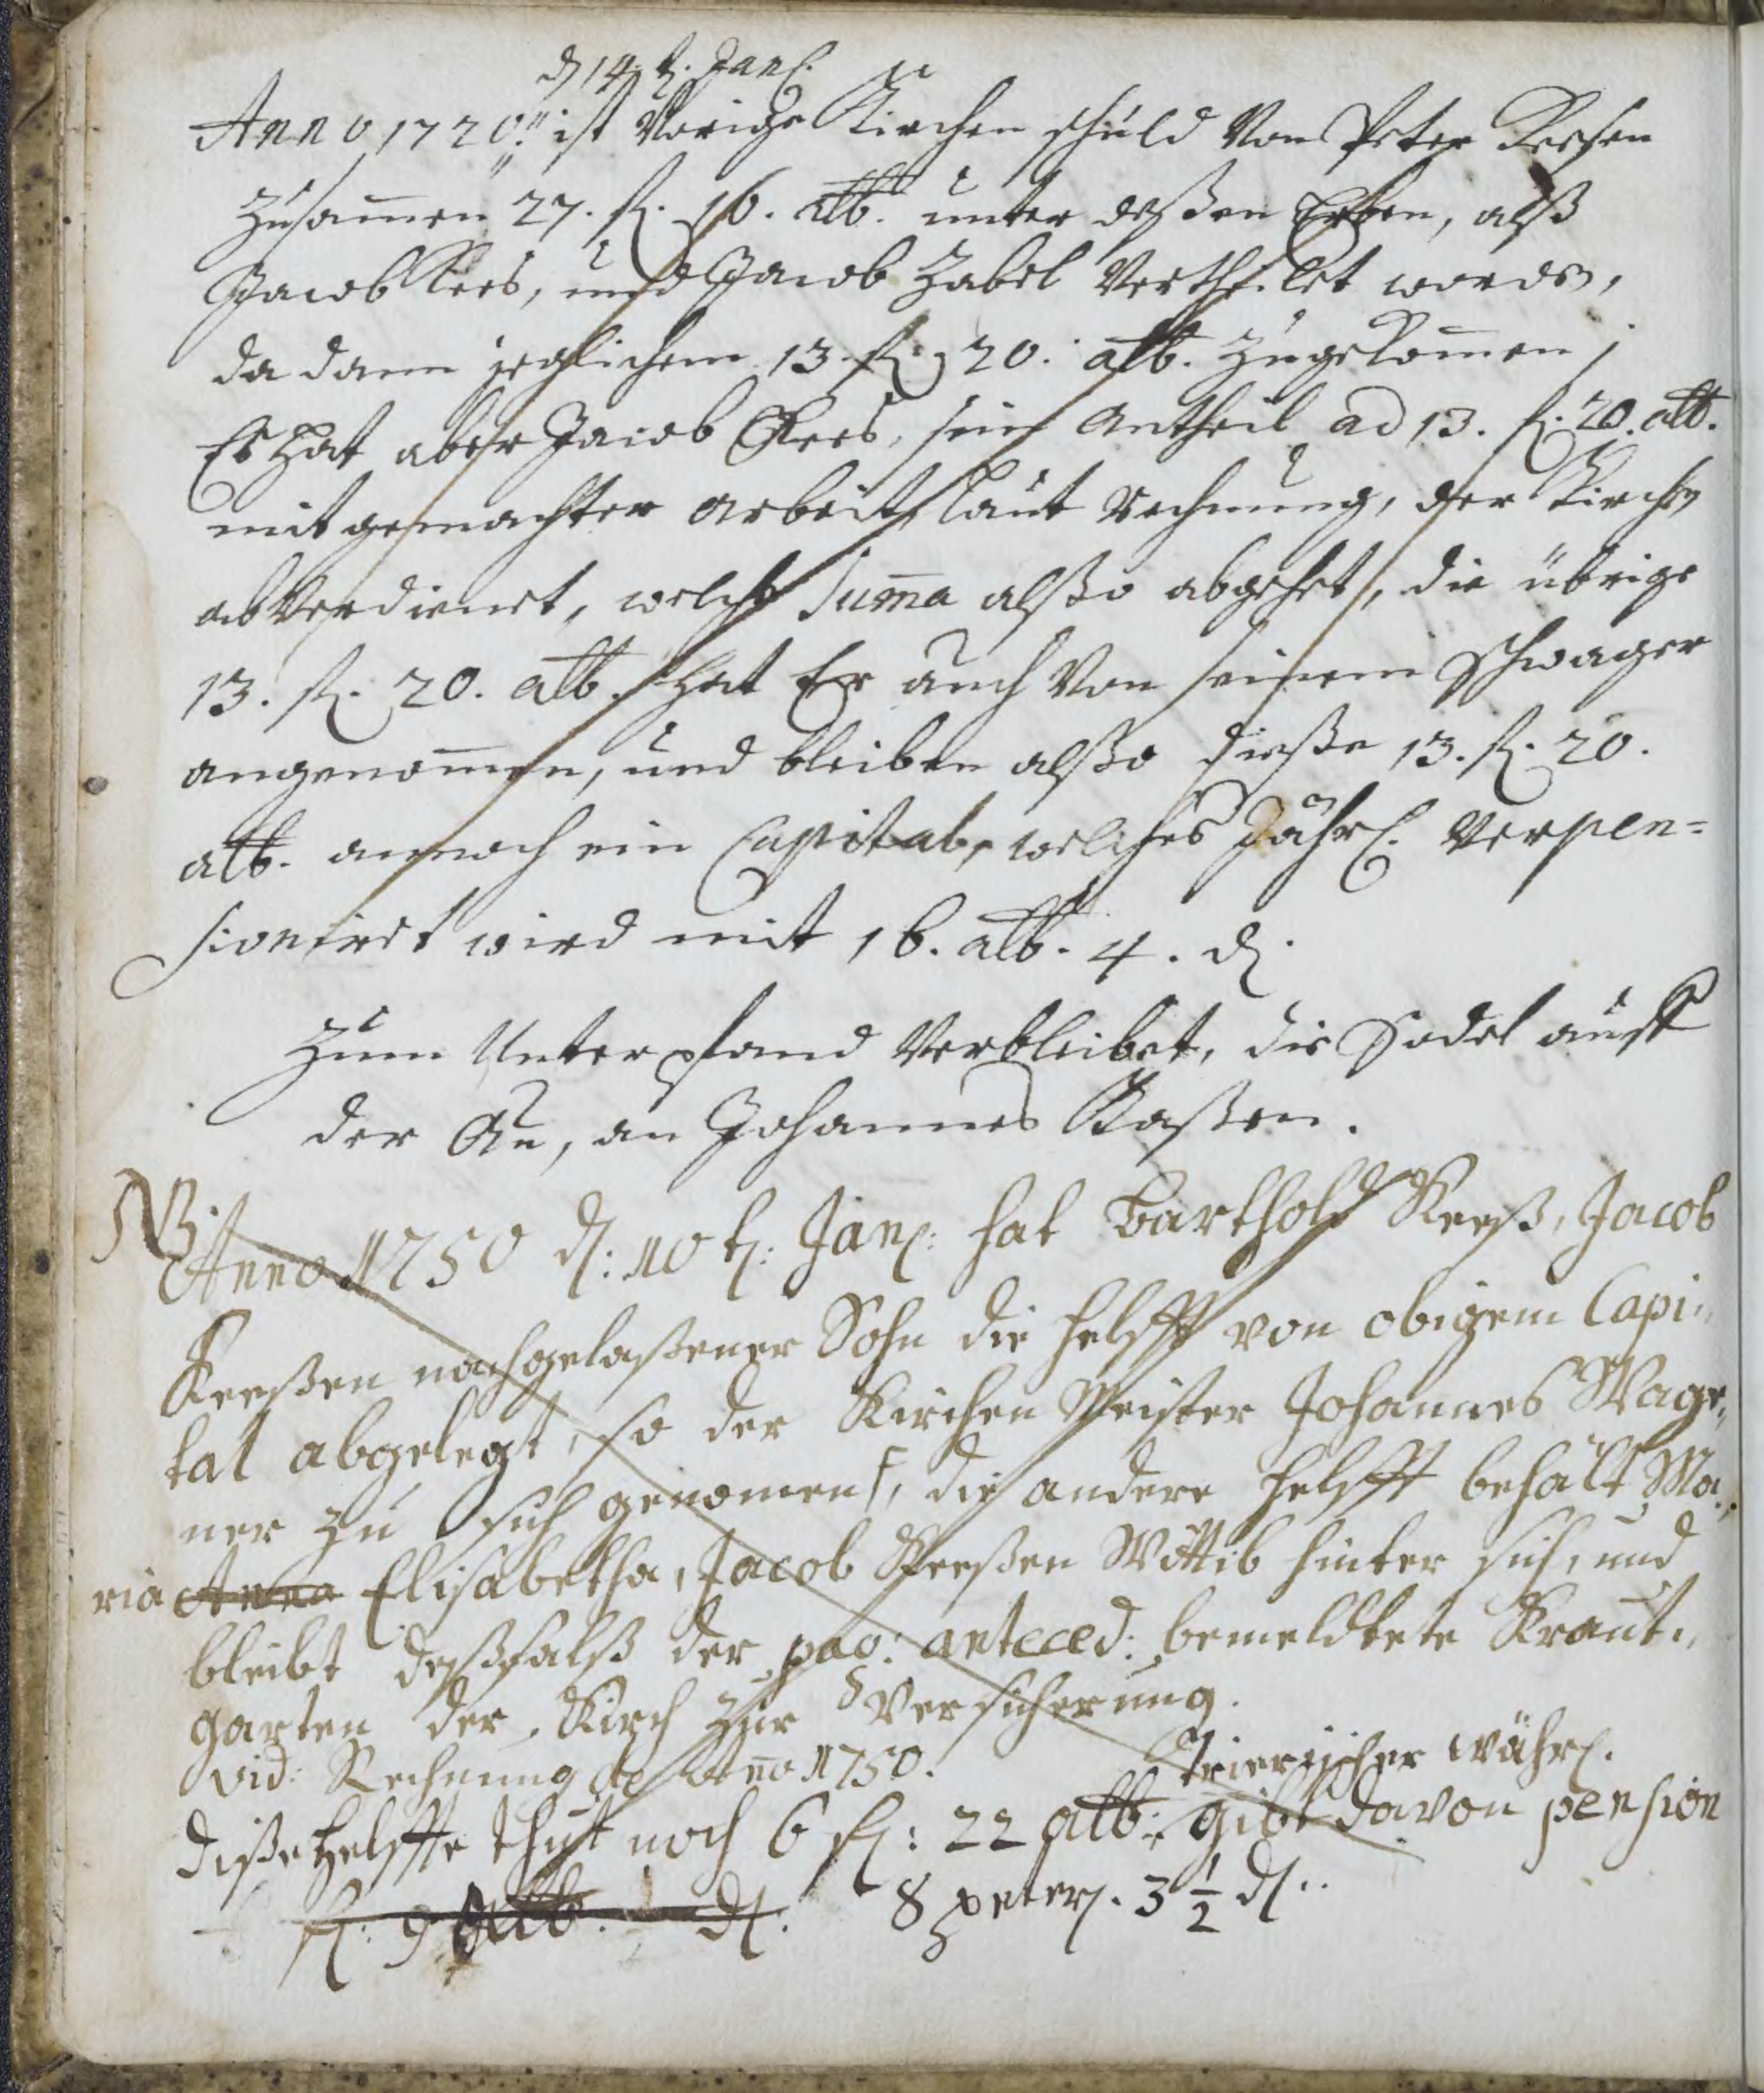 d 14. t. Jan.
Anno 1720. ist Vorige Kirchen schuld Von Peter Keesen
zusam̅en 27. fl. 16. alb. unter deßen Erben, alß
Jacob Kees, und Jacob Zabel Vertheilet worden,
da dann jeglichem 13 fl. 20. alb. zugekom̅en;
Es hat aber Jacob Kees, sein Antheil ad 13. fl. 20. alb.
mit gemachter arbeit laut rechnung, der Kirchen
abverdienet, welche Sum̅a alßo abgehet, die übrige
13. fl. 20. alb. hat Er auch Von seinem Schwager
angenom̅en, und bleiben alßo dieße 13. fl. 20.
alb. annoch ein Capital, welches Jährl. Verpen=
sioniret wird mit 16. alb. 4. d.
Zum Unterpfand Verbleibet, die Sodel auff
der Au, an Johannes Kaßen.
NB.
Anno 1750 d: 10 t: Jan: hat Barthold Keeß, Jacob
Keeßen nachgelaßener Sohn die helfft von obigem Capi,,
tal abgelegt, so der Kirchen Meister Johannes Wage,,
ner zu sich genomen, die andere helfft behält Ma,,
ria Anna Elisabetha, Jacob Keeßen Wittib hinter sich, und
bleibt deßfalß der pag: anteced: bemeldtete Kraut,,
garten der Kirch zur Versicherung.
vid: Rechnung de Anno 1750.
Trierischer währ.
diße helffte thut noch 6 fl: 22 alb: gibt davon pension
fl: 9 alb. d. 8 peter. 3 1/2 d..